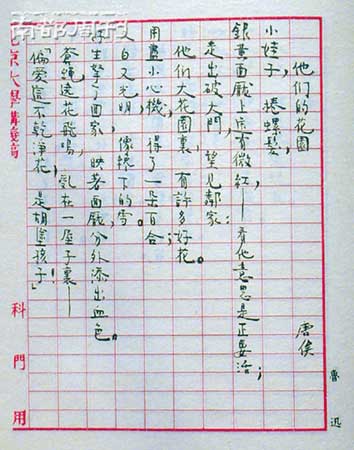 南都周刊
魯迅
唐俟
他们的花園
小娃子，捲螺髮，
銀黃面龐上還有微紅——看他意思是正要活；
走出破大門，望見鄰家：
他们大花園裏，有許多好花。
用盡小心機，得了一朵百合；
又白又光明，像纔下的雪。
好生拏了回家，映着面龐，分外添出血色。
蒼蠅遶花飛鳴，乱在一屋子裏——
「偏愛這不乾淨花，是胡塗孩子！」
北京大學講義稿
科 門 用